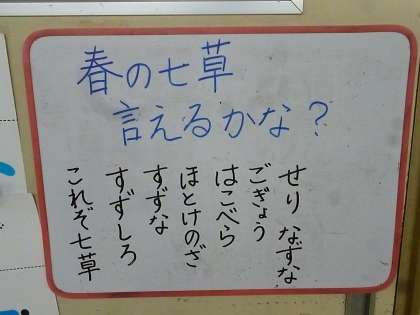 春の七草
言えるかな？
せり なずな
ごぎょう
はこべら
ほとけのざ
すずな
すずしろ
これぞ七草